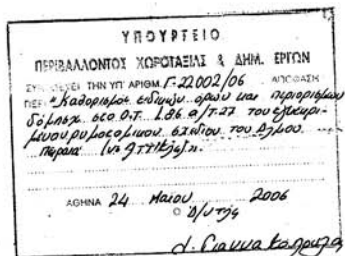 ΥΠΟΥΡΓΕΙΟ
ΠΕΡΙΒΑΛΛΟΝΤΟΣ ΧΩΡΟΤΑΞΙΑΣ & ΔΗΜ. ΕΡΓΩΝ
ΣΥΝΟΔΕΥΕΙ ΤΗΝ ΥΠ' ΑΡΙΘΜ. Γ-22002/06 ΑΠΟΦΑΣΗ
ΠΕΡΙ "Καθορισμός ειδικών όρων και περιορισμών
δόμησης στο Ο.Τ. 186 α/τ.27 του εγκεκρι-
μένου ρυμοτομικού σχεδίου του Δήμου
Πειραιά (ν. Αττικής)".
ΑΘΗΝΑ 24 Μαΐου 2006
Ο Δ/ντής